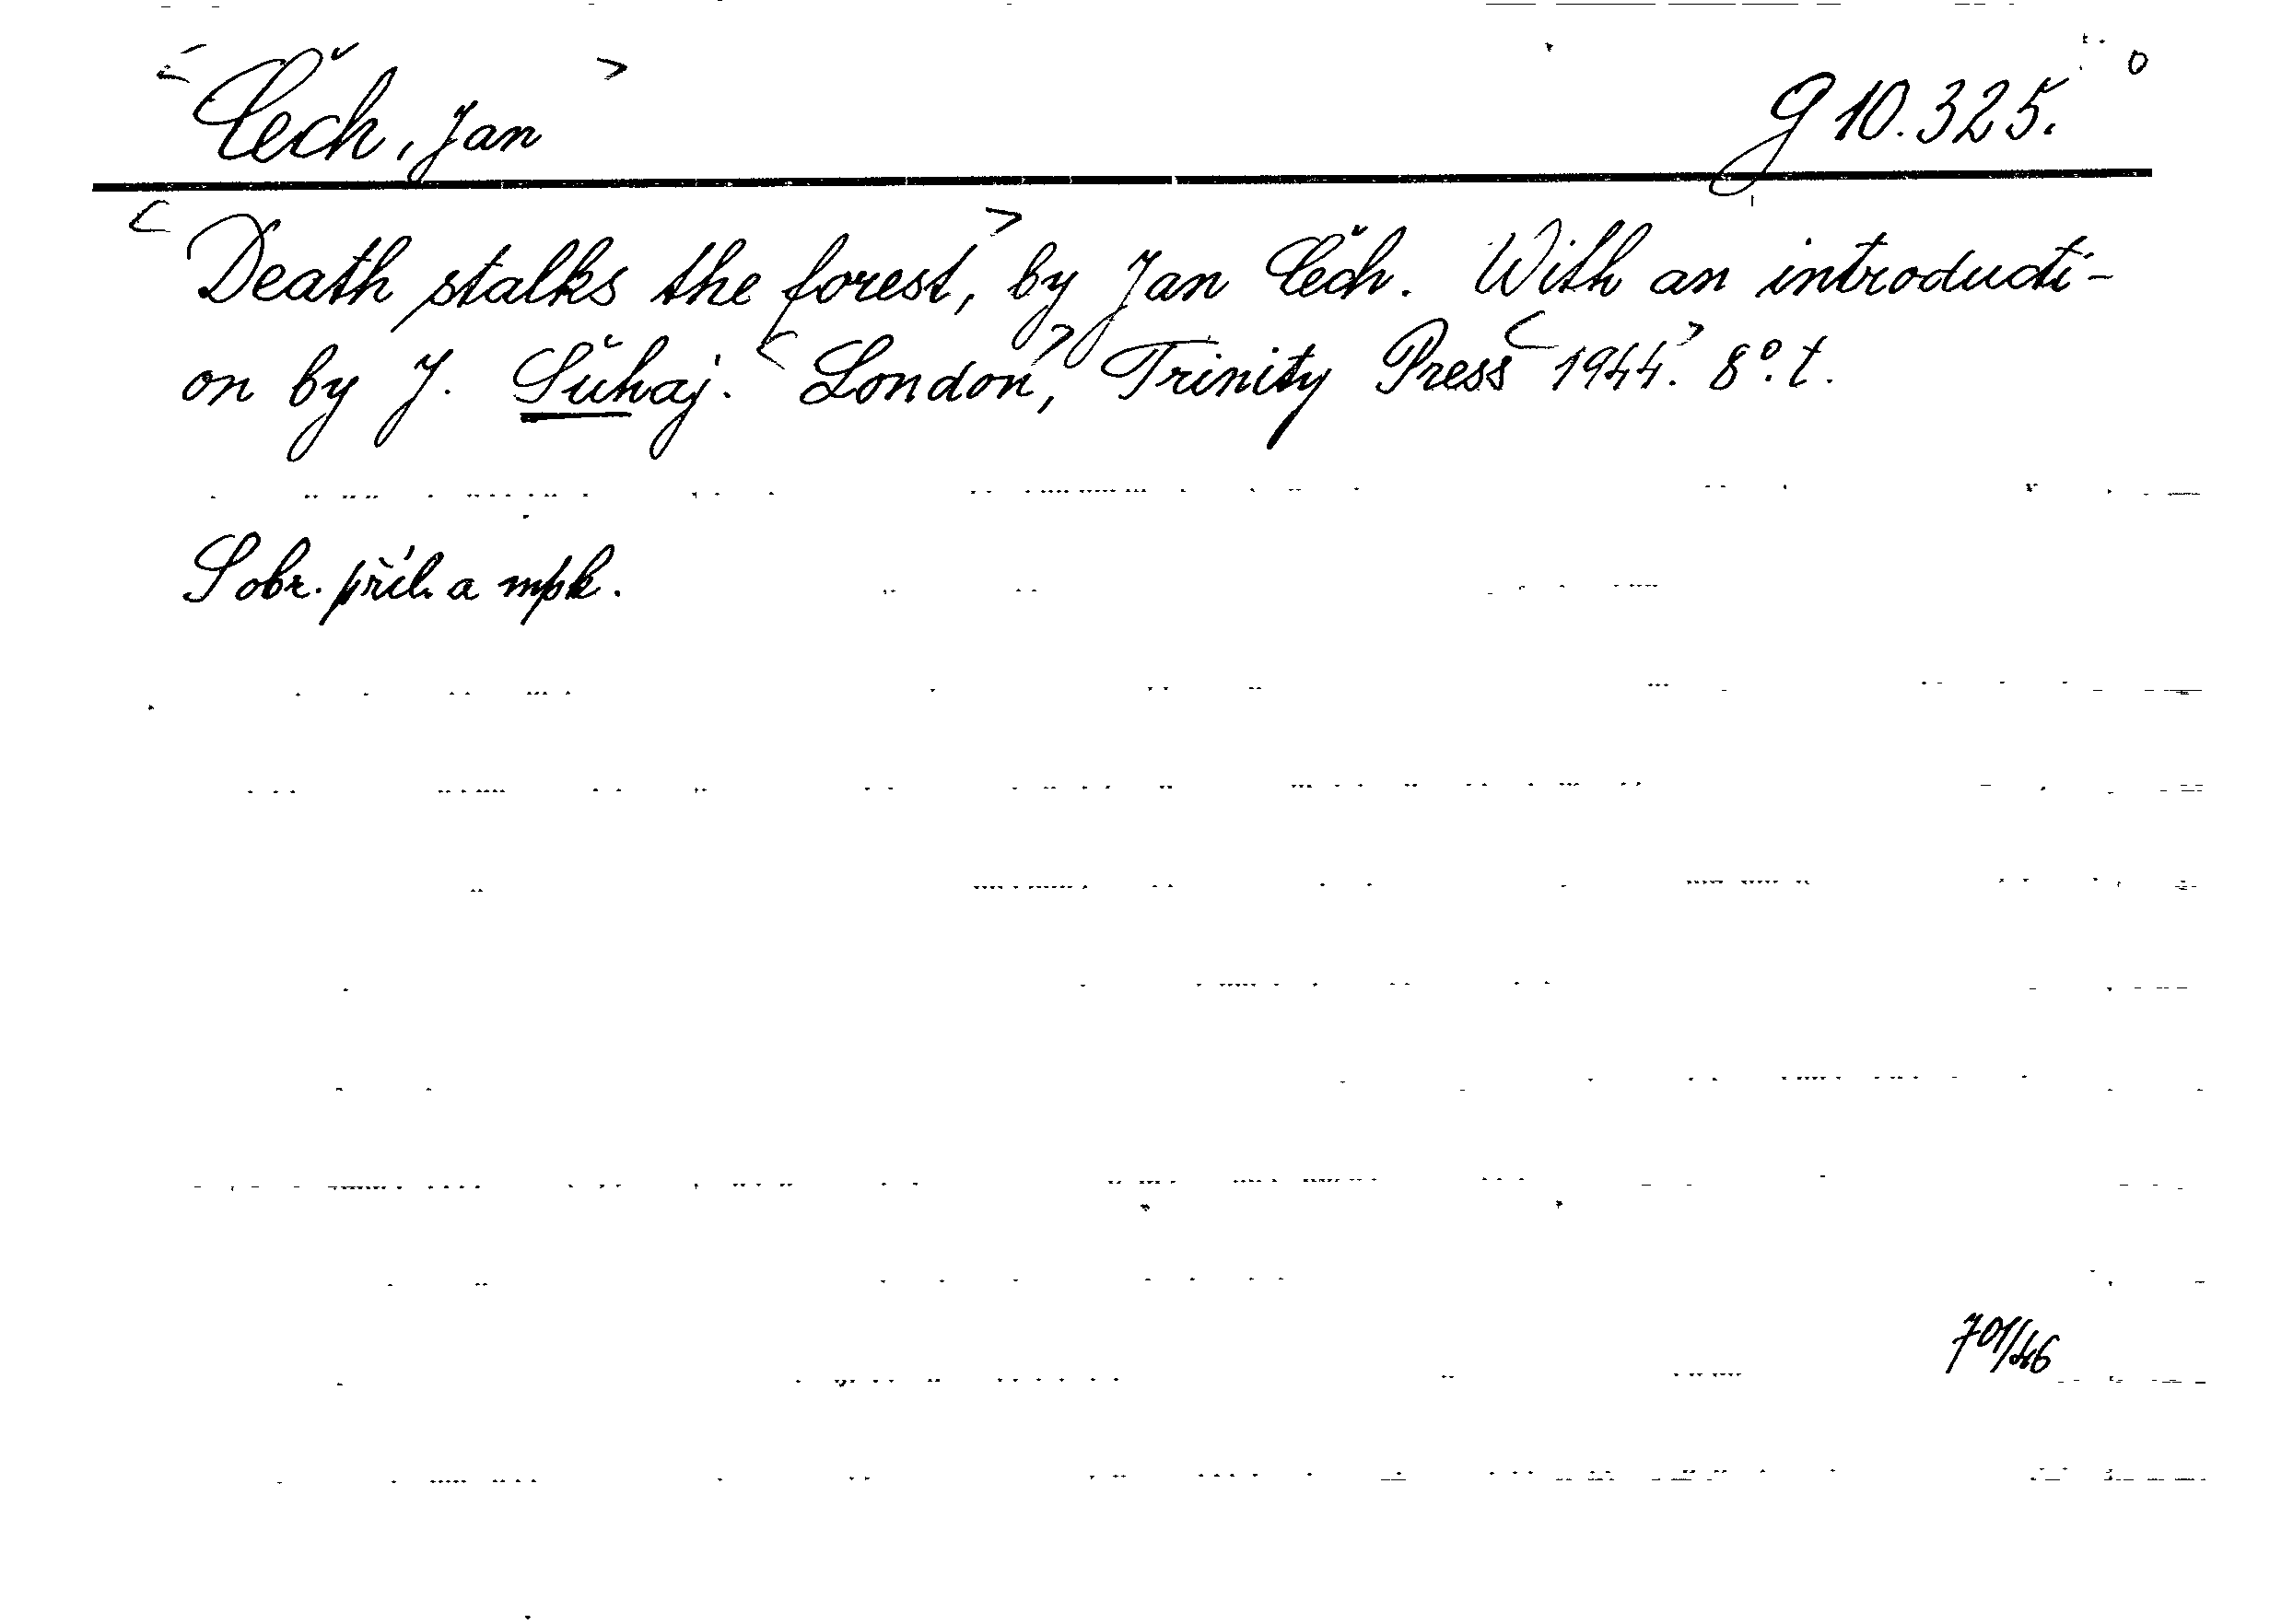 <Čech, Jan> g 10.325. o
<Death stalks the forest,> by Jan Čech. With an introducti-
on by J. Šuhaj. <London,> Trinity Press <1944.> 8°. t.
S obr. příl. a mpk.
701/46